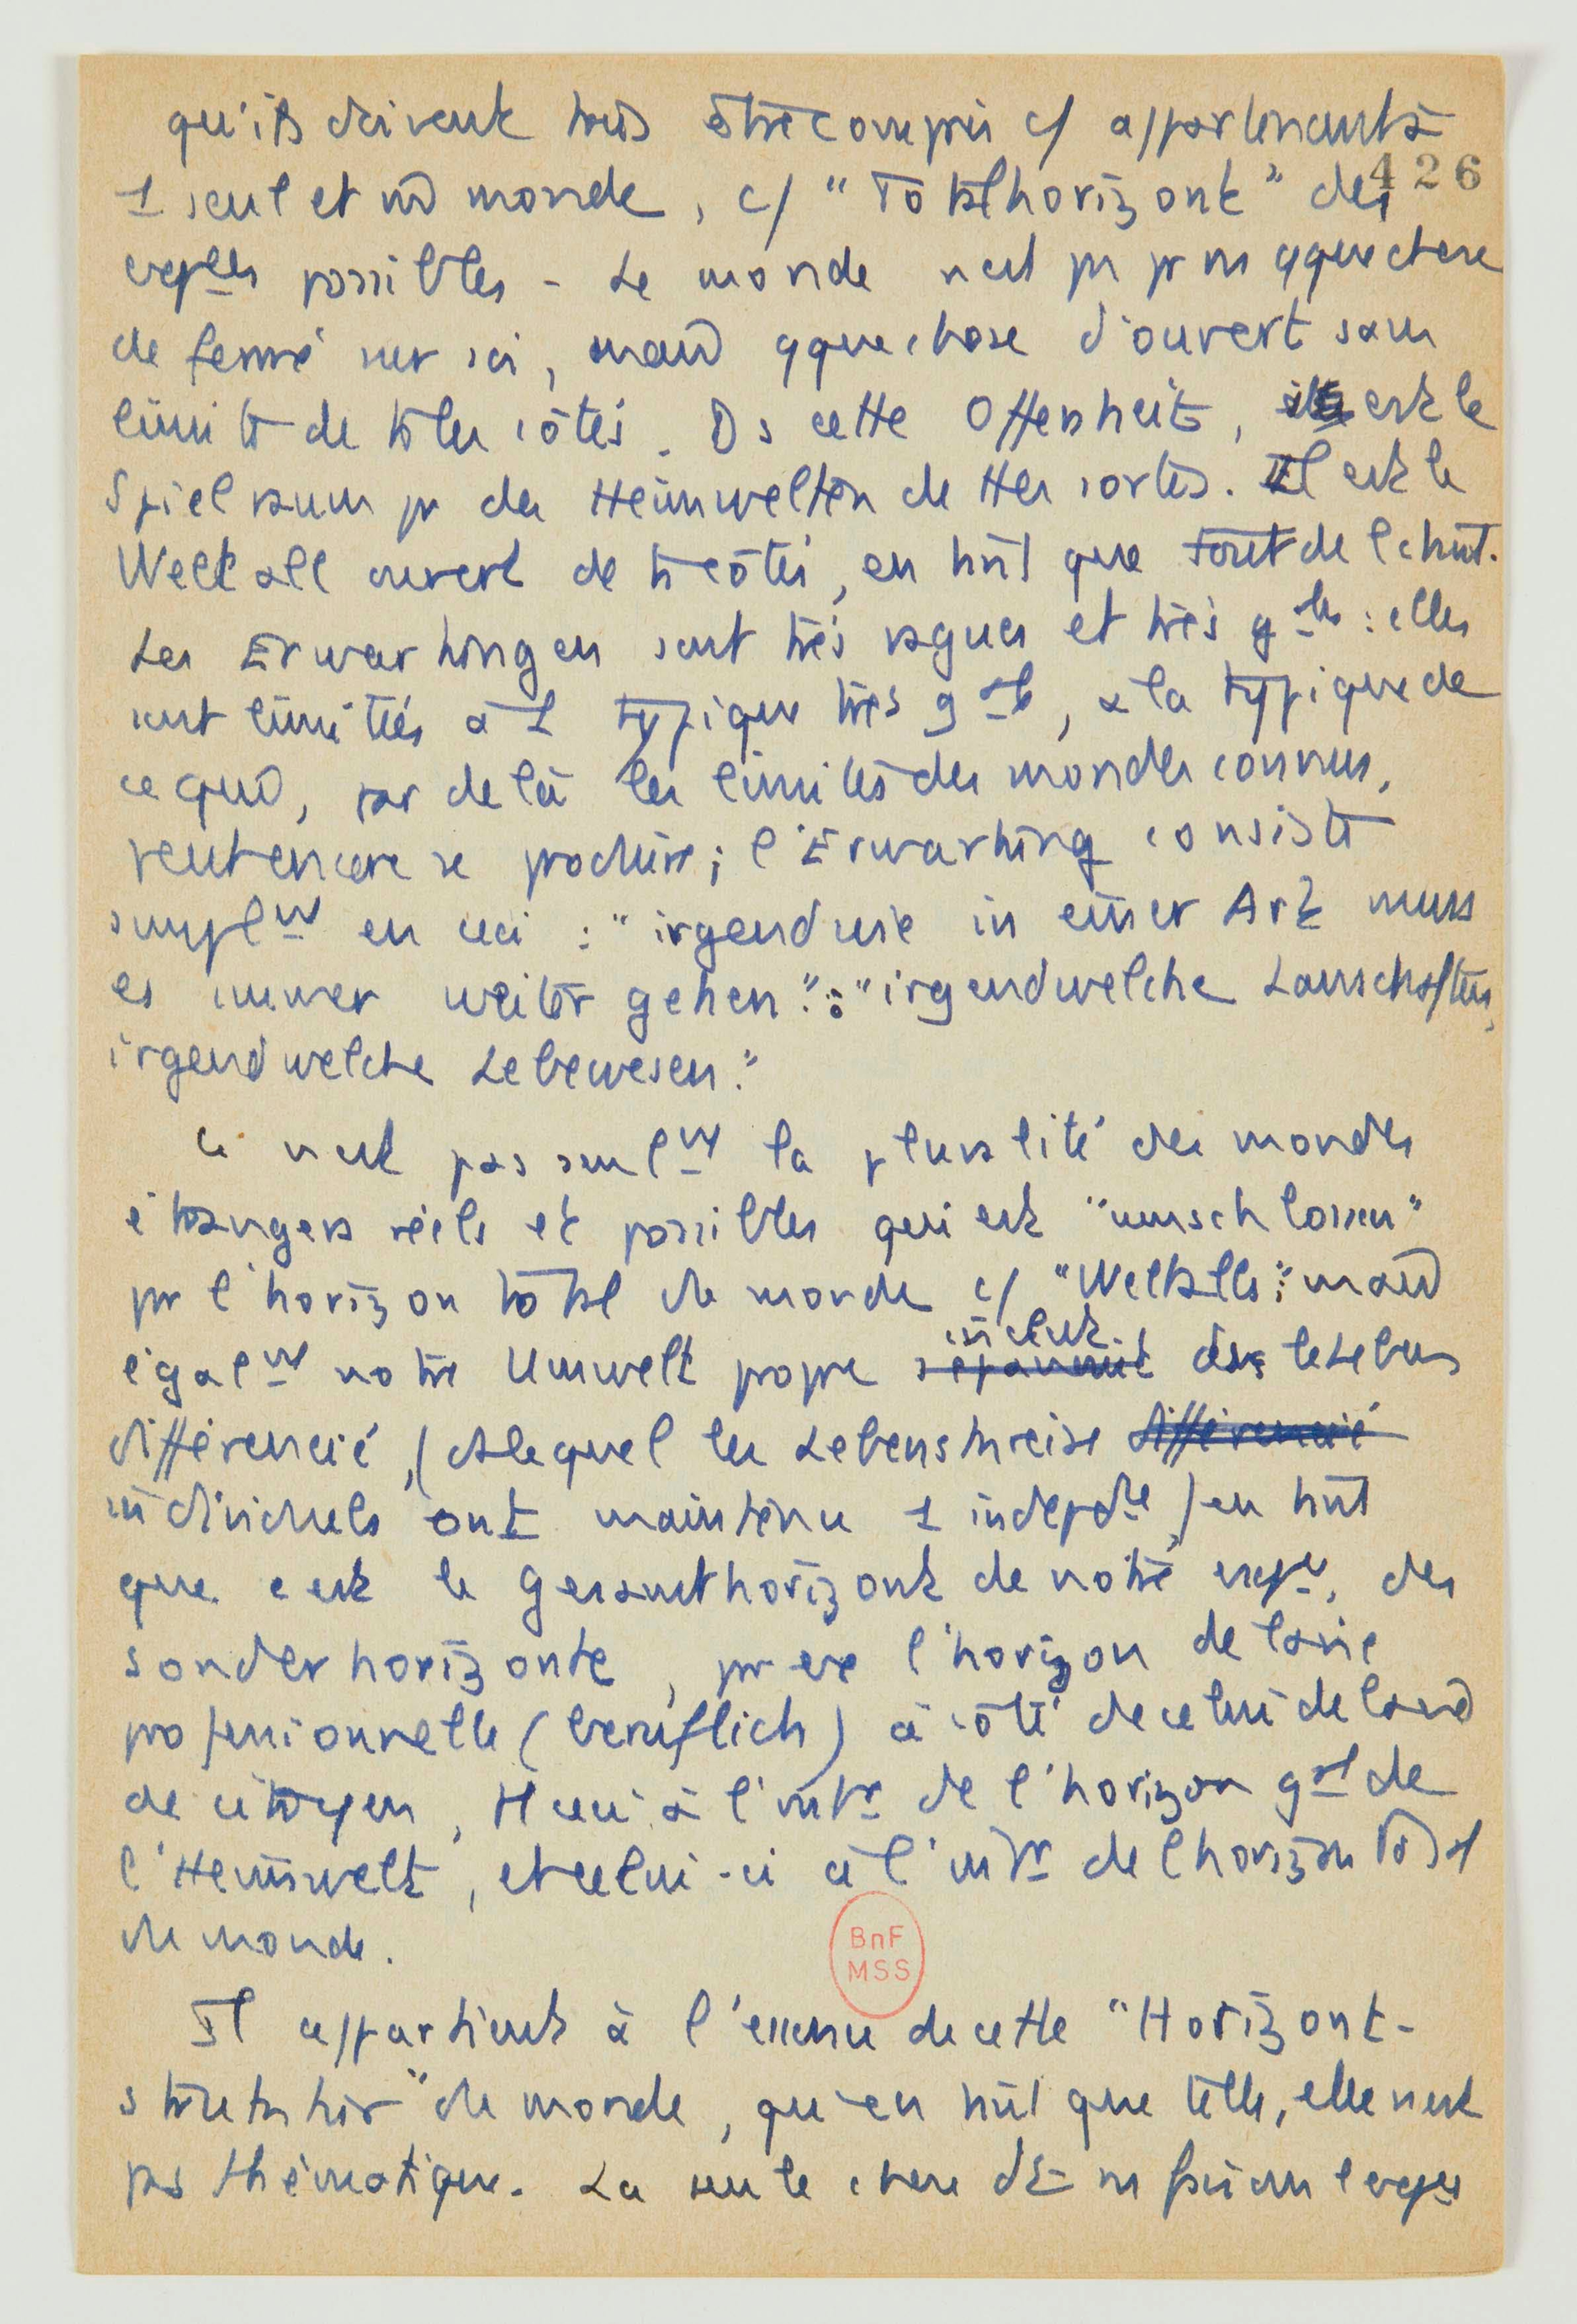 qu'ils doivent tous être compris c/ appartenant à
426
1 seul et m̂ monde, c/ "Totalhorizont" des
expces possibles - Le monde n'est pr ns qque chose
de fermé sur soi, mais qque chose d'ouvert sans
limite de ts les côtés. Ds cette Offenheit, est le
Spielraum pr des Heimwelten de ttes sortes. Il est le
Weltall ouvert de ts côtés, en tant que tout de l'
Les Erwartungen sont très vagues et très gales : elles
sont limitées à 1 typique très gale, à la typique de
ce qui, par delà les limites des mondes connus,
peut encore se produire ; l'Erwartung consiste
simplmt en ceci : "irgendwie in einer Art muss
es immer weiter gehen" : "irgendwelche Lanschaften,
irgendwelche Lebewesen."
Ce n'est pas seulmt la pluralité des mondes
étrangers réels et possibles qui est "umschlossen"
pr l'horizon total du monde c/ "Weltalls" : mais
inclut
égalmt notre Umwelt propre ds le Lebens
différencié, (ds lequel les Lebenskreise différencié
individuels ont maintenu 1 indepdce) en tant
que c'est le Gesamthorizont de notre expce, des
Sonderhorizonte, pr ex l'horizon de la vie
professionnelle (beruflich) à côté de celui de la vie
de citoyen, tt ceci à l'intr de l'horizon gal de
l'Heimwelt, et celui-ci à l'intr de l'horizon total
du monde.
BnF
MSS
Il appartient à l'essence de cette "Horizont-
struktur" du monde, qu'en tant que telle, elle n'est
pas thématique. La seule chose dt ns faisons l'expce